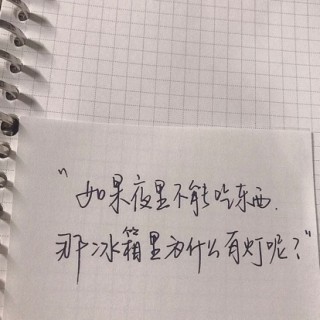 "如果夜里不能吃东西.
那冰箱里为什么有灯呢?"